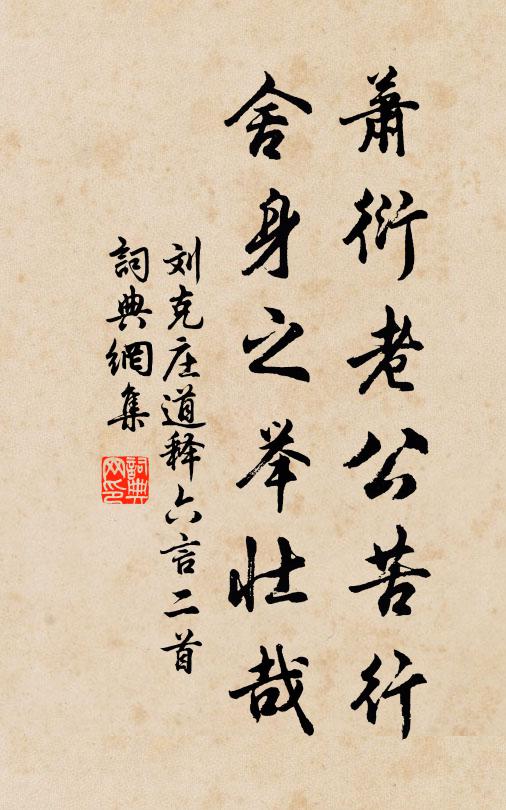 萧衍老公苦行
舍身之举壮哉
刘克庄道释六言二首
詞典網集
詞典
网印